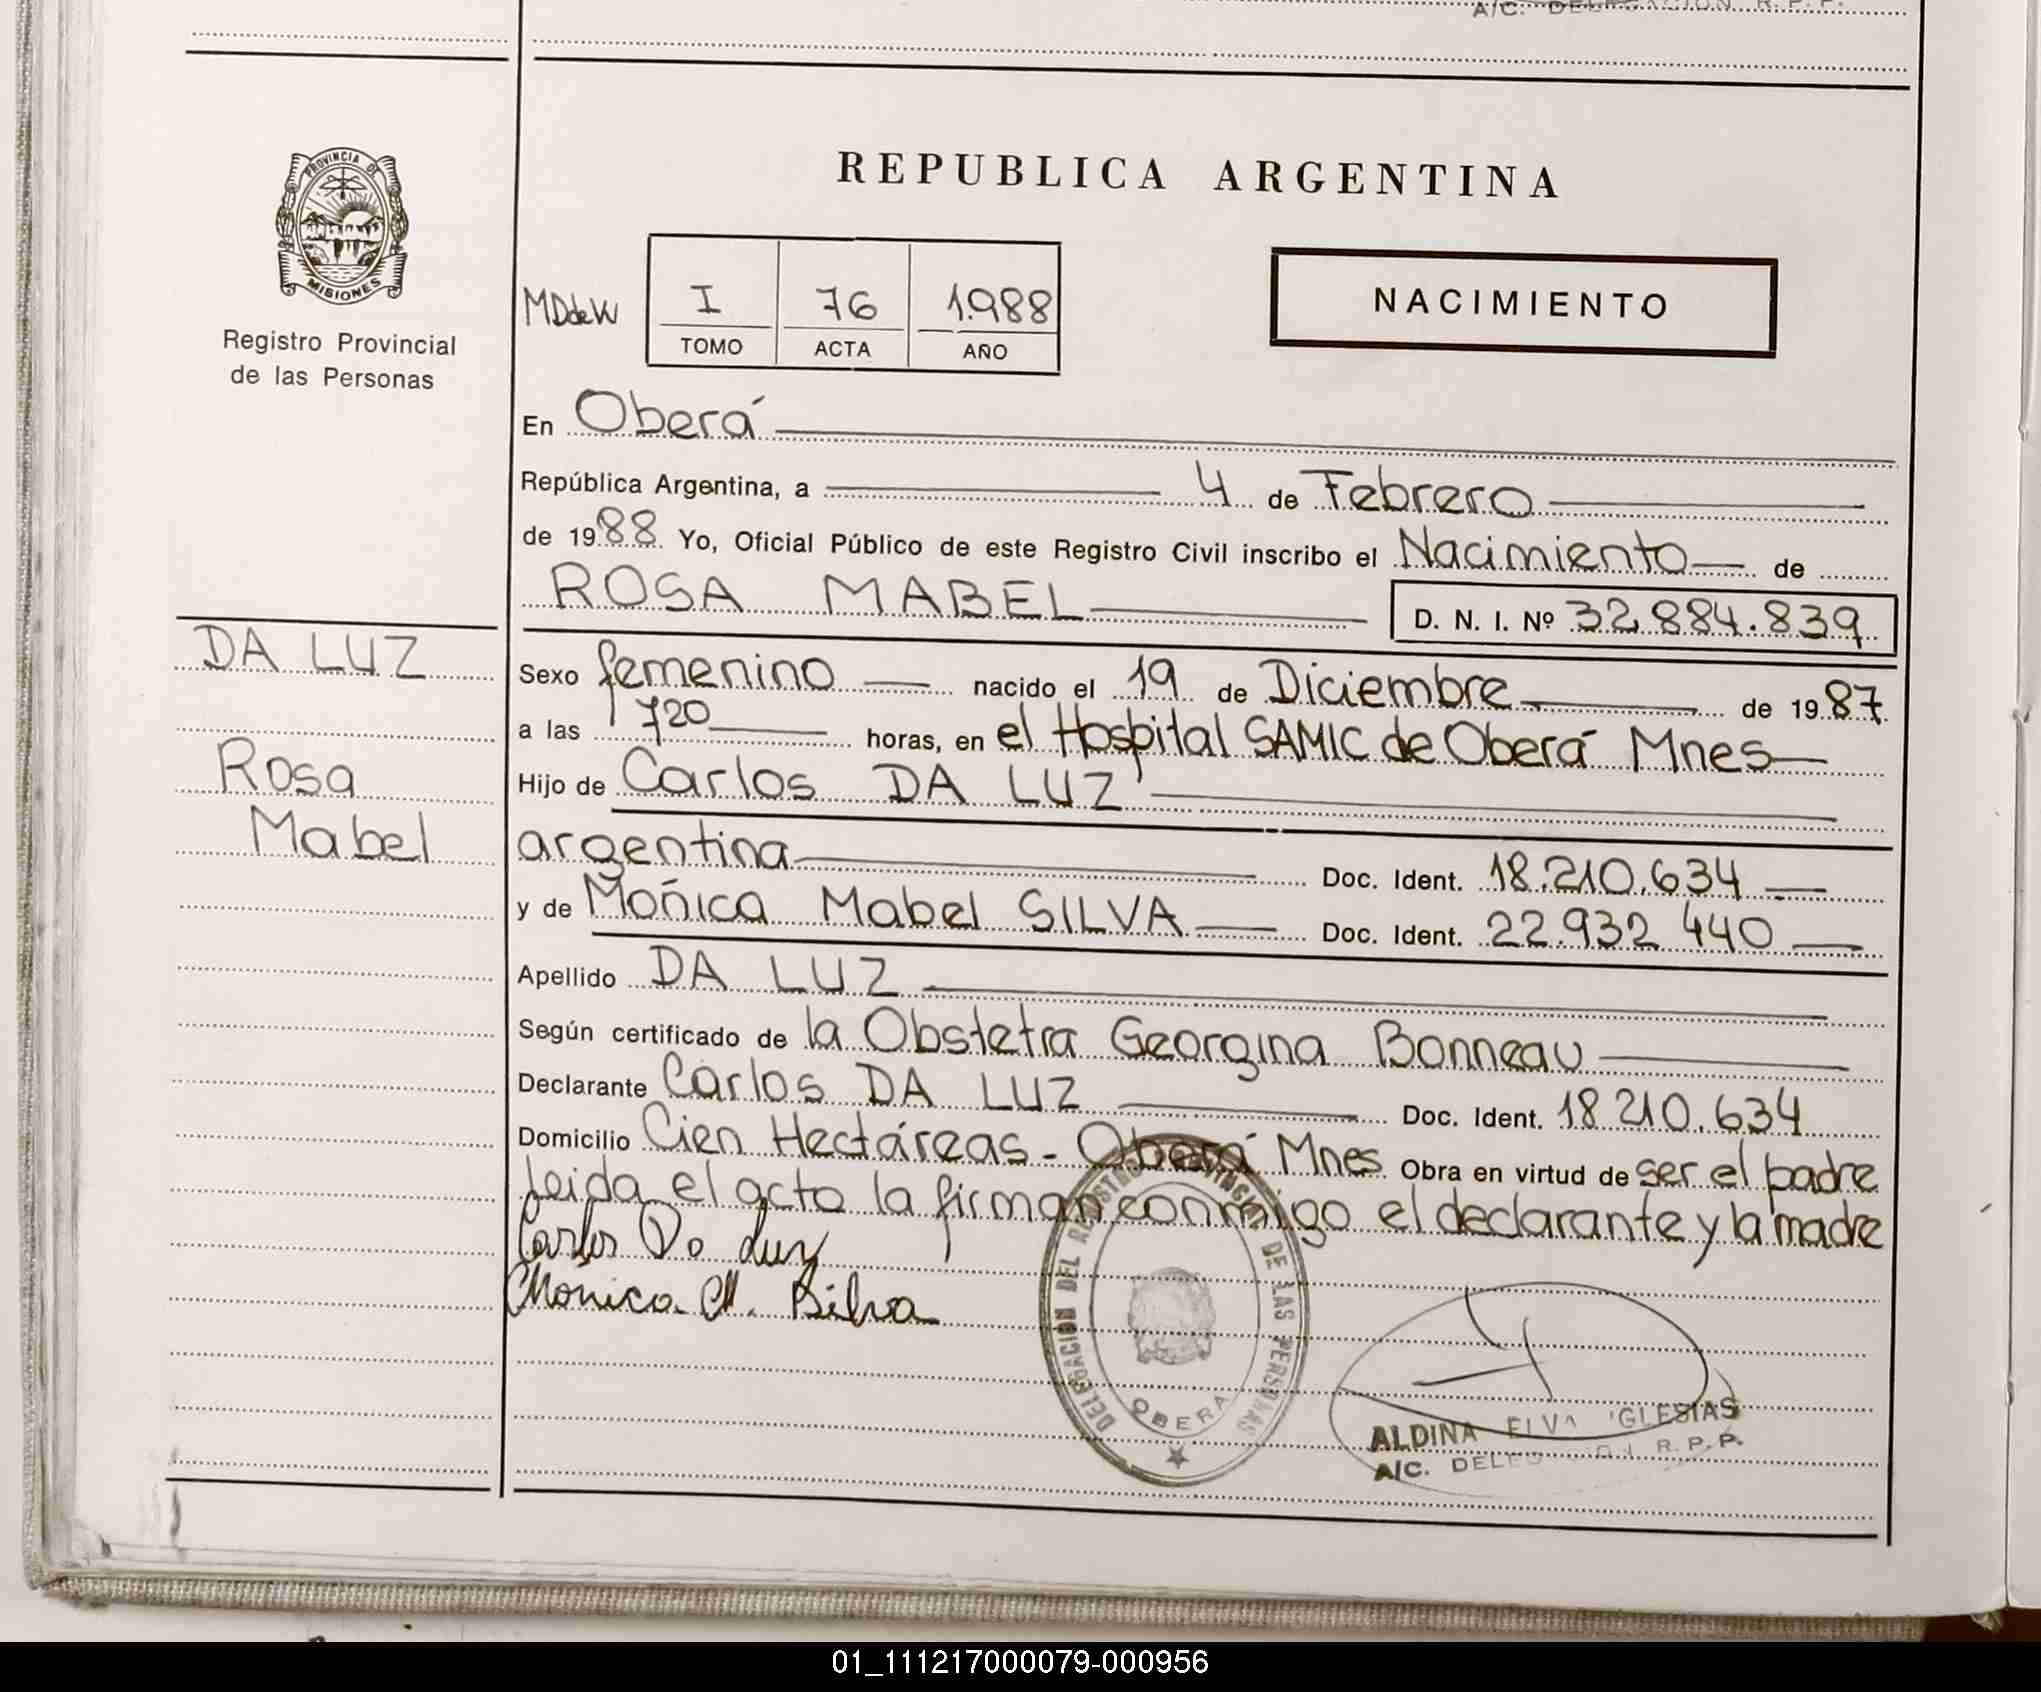 A/C. DELEGACION R. P. P.
PROVINCIA DE
MISIONES
Registro Provincial
de las Personas
REPUBLICA ARGENTINA
MDdeW
I 76 1.988
TOMO ACTA AÑO
NACIMIENTO
En Oberá
República Argentina, a 4 de Febrero
de 1988 Yo, Oficial Público de este Registro Civil inscribo el Nacimiento de
ROSA MABEL D. N. I. Nº 32.884.839
DA LUZ
Rosa
Mabel
Sexo femenino nacido el 19 de Diciembre de 1987
a las 720 horas, en el Hospital SAMIC de Oberá Mnes
Hijo de Carlos DA LUZ
argentina Doc. Ident. 18.210.634
y de Mónica Mabel SILVA Doc. Ident. 22.932 440
Apellido DA LUZ
Según certificado de la Obstetra Georgina Bonneau
Declarante Carlos DA LUZ Doc. Ident. 18.210.634
Domicilio Cien Hectáreas - Oberá Mnes Obra en virtud de ser el padre
Leida el acto la firman conmigo el declarante y la madre
Carlos Da Luz
Mónica M. Silva
DELEGACION DEL REGISTRO PROVINCIAL DE LAS PERSONAS
OBERA
ALDINA ELVA IGLESIAS
A/C. DELEGACION R. P. P.
01_111217000079-000956